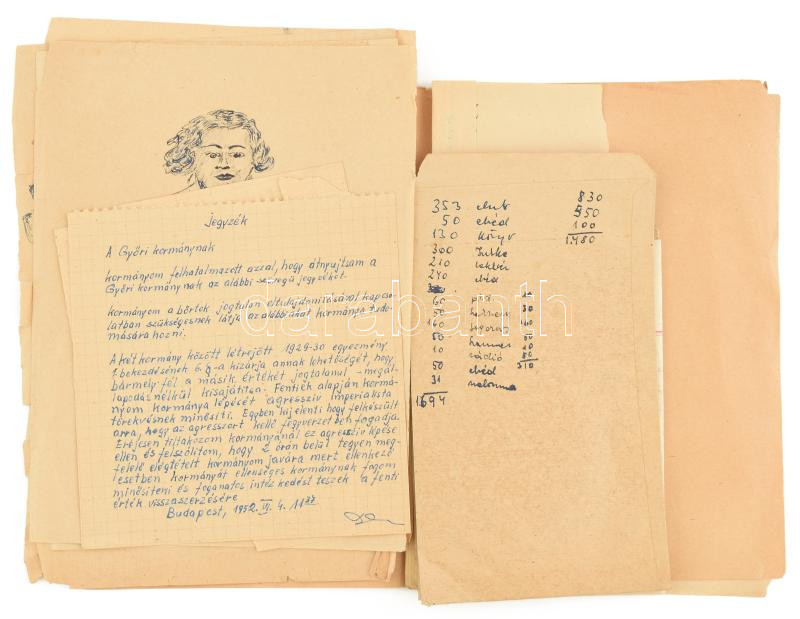 Jegyzék
A Győri kormánynak
Kormányom felhatalmazott azzal, hogy átnyujtsam a
Győri kormánynak az alábbi szövegű jegyzéket.
Kormányom a börtek jogtulan eltulajdonitásáról kapcso-
latban szükségesnek látja az alábbiakat kormánya tudo-
mására hozni.
A két kormány között létrejött 1929-30 egyezmény
bekezdésének 6. §-a kizárja annak lehetőségét, hogy
bármely fél a másik értékét jogtalanul - megál-
lapodás nélkül kisajátitsa. Fentiek alapján kormá-
nyom kormánya lépését agressziv imperialista
törekvésnek minősiti. Egyben kijelenti hogy felkészült
arra, hogy az agressort kellő fegyverzetben fogadja.
Erélyesen tiltakozom kormányánál ez agressziv lépése
ellen és felszólitom, hogy 2 órán belül tegyen meg-
felelő elégtételt kormányom javára mert ellenkező
esetben kormányát ellenséges kormánynak fogom
minősiteni és foganatos intézkedést teszek a fenti
érték visszaszerzésére
Budapest, 1952. VI. 4. 11
353 830
50 ebéd 550
130 könyv 100
300 Jutka 1.480
210 lekvár
240
60
50
160
50
10 rádió
50 ebéd 310
31
1694
darabanth